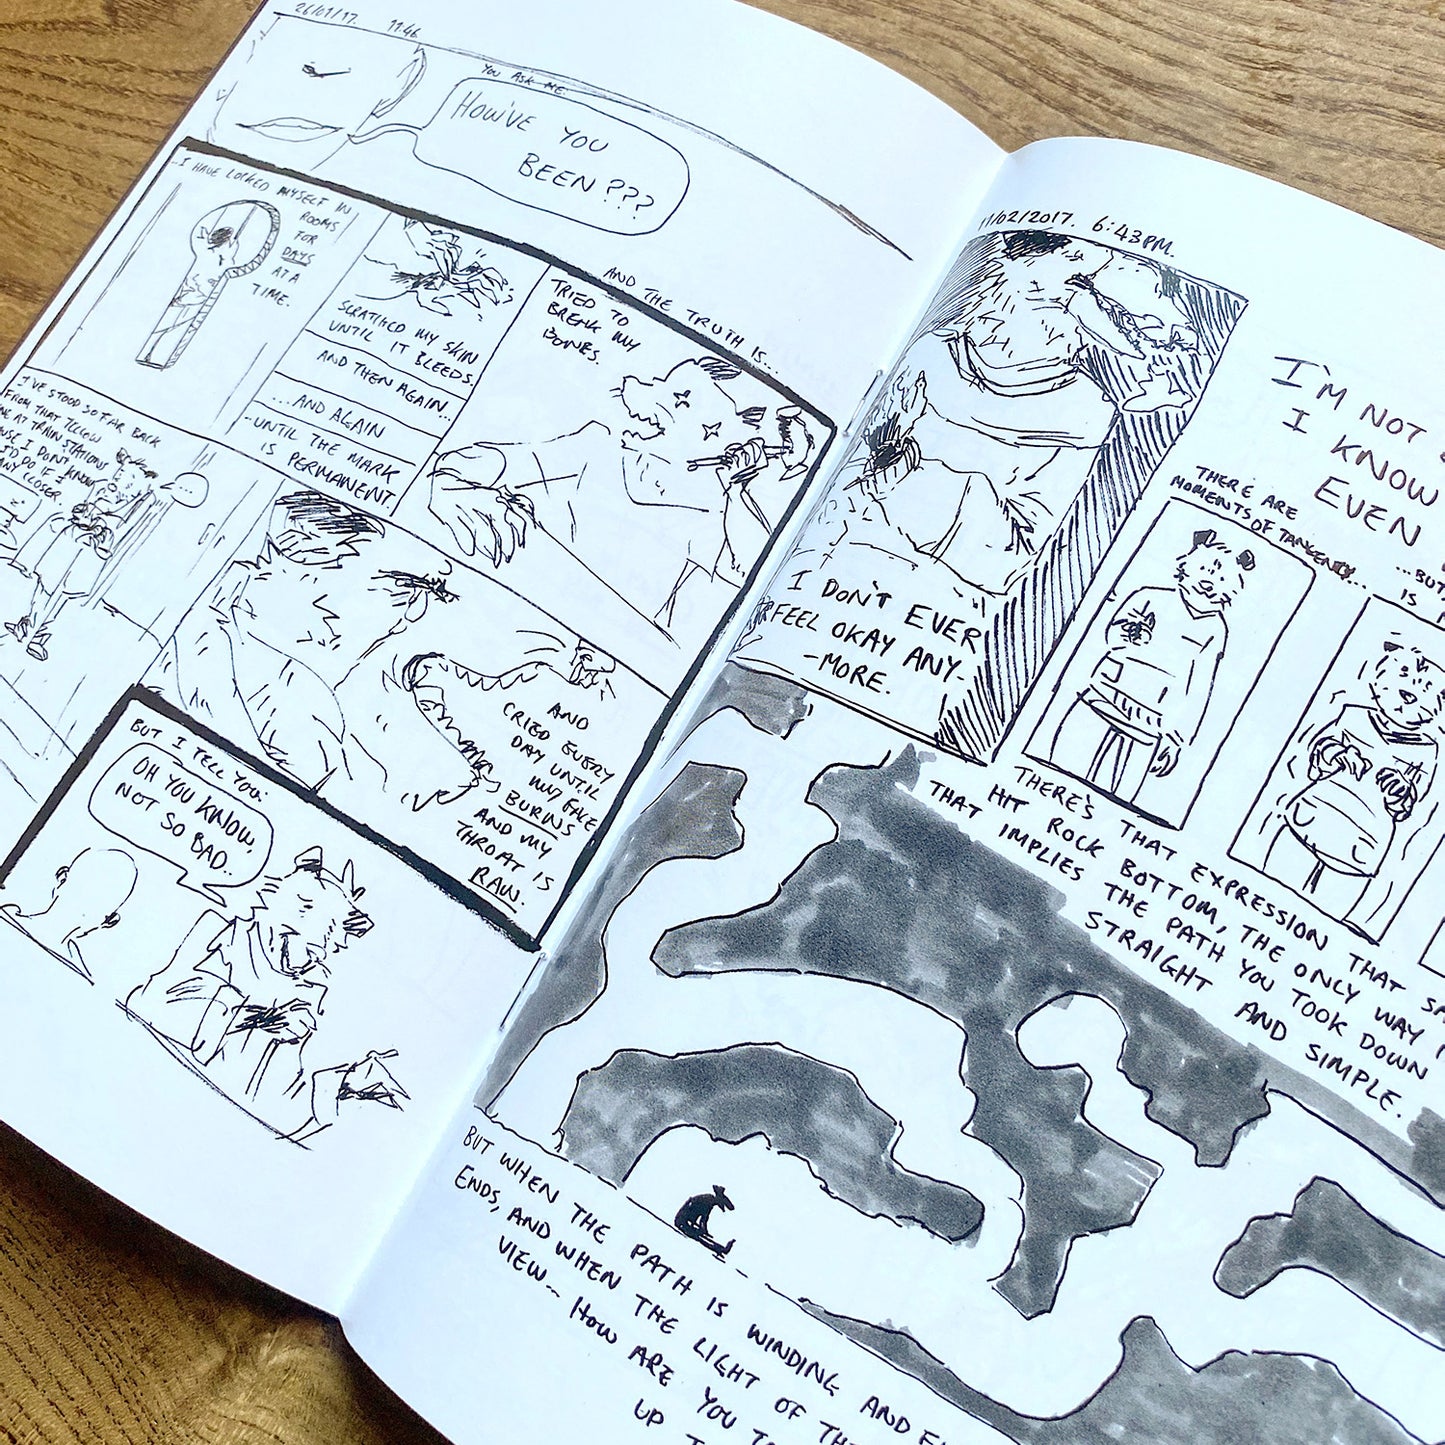 26/01/17. 11:46
YOU ASK ME.
HOW'VE YOU
BEEN???
AND THE TRUTH IS...
...I HAVE LOCKED MYSELF IN
ROOMS
FOR
DAYS
AT A
TIME.
SCRATCHED MY SKIN
UNTIL IT BLEEDS.
AND THEN AGAIN...
...AND AGAIN
...UNTIL THE MARK
IS PERMANENT.
TRIED TO
BREAK MY
BONES.
I'VE STOOD SO FAR BACK
FROM THAT YELLOW
AT TRAIN STATIONS
I DON'T
KNOW
I'D DO IF I
ANY CLOSER.
...
AND
CRIED EVERY
DAY UNTIL
MY FACE
BURNS
AND MY
THROAT IS
RAW.
BUT I TELL YOU:
OH YOU KNOW,
NOT SO BAD..
/02/2017. 6:43PM.
I DON'T EVER
FEEL OKAY ANY-
-MORE.
I'M NOT
I KNOW
EVEN
THERE ARE
MOMENTS OF TANGENCY...
...BUT
IS
THERE'S THAT EXPRESSION THAT
HIT ROCK BOTTOM, THE ONLY WAY
THAT IMPLIES THE PATH YOU TOOK DOWN
STRAIGHT AND SIMPLE.
BUT WHEN THE PATH IS WINDING AND
ENDS, AND WHEN THE LIGHT OF
VIEW... HOW ARE YOU
UP